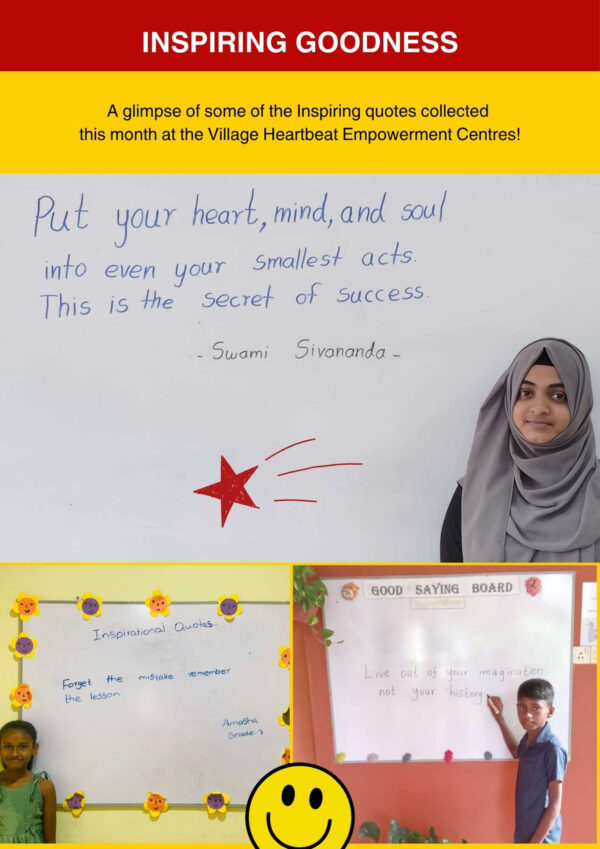 INSPIRING GOODNESS
A glimpse of some of the Inspiring quotes collected
this month at the Village Heartbeat Empowerment Centres!
Put your heart, mind, and soul
into even your smallest acts.
This is the secret of success.
- Swami Sivananda -
Inspirational Quotes
Forget the mistake remember
the lesson
Amasha
Grade-7
GOOD SAYING BOARD
Live out of your imagination
not your history